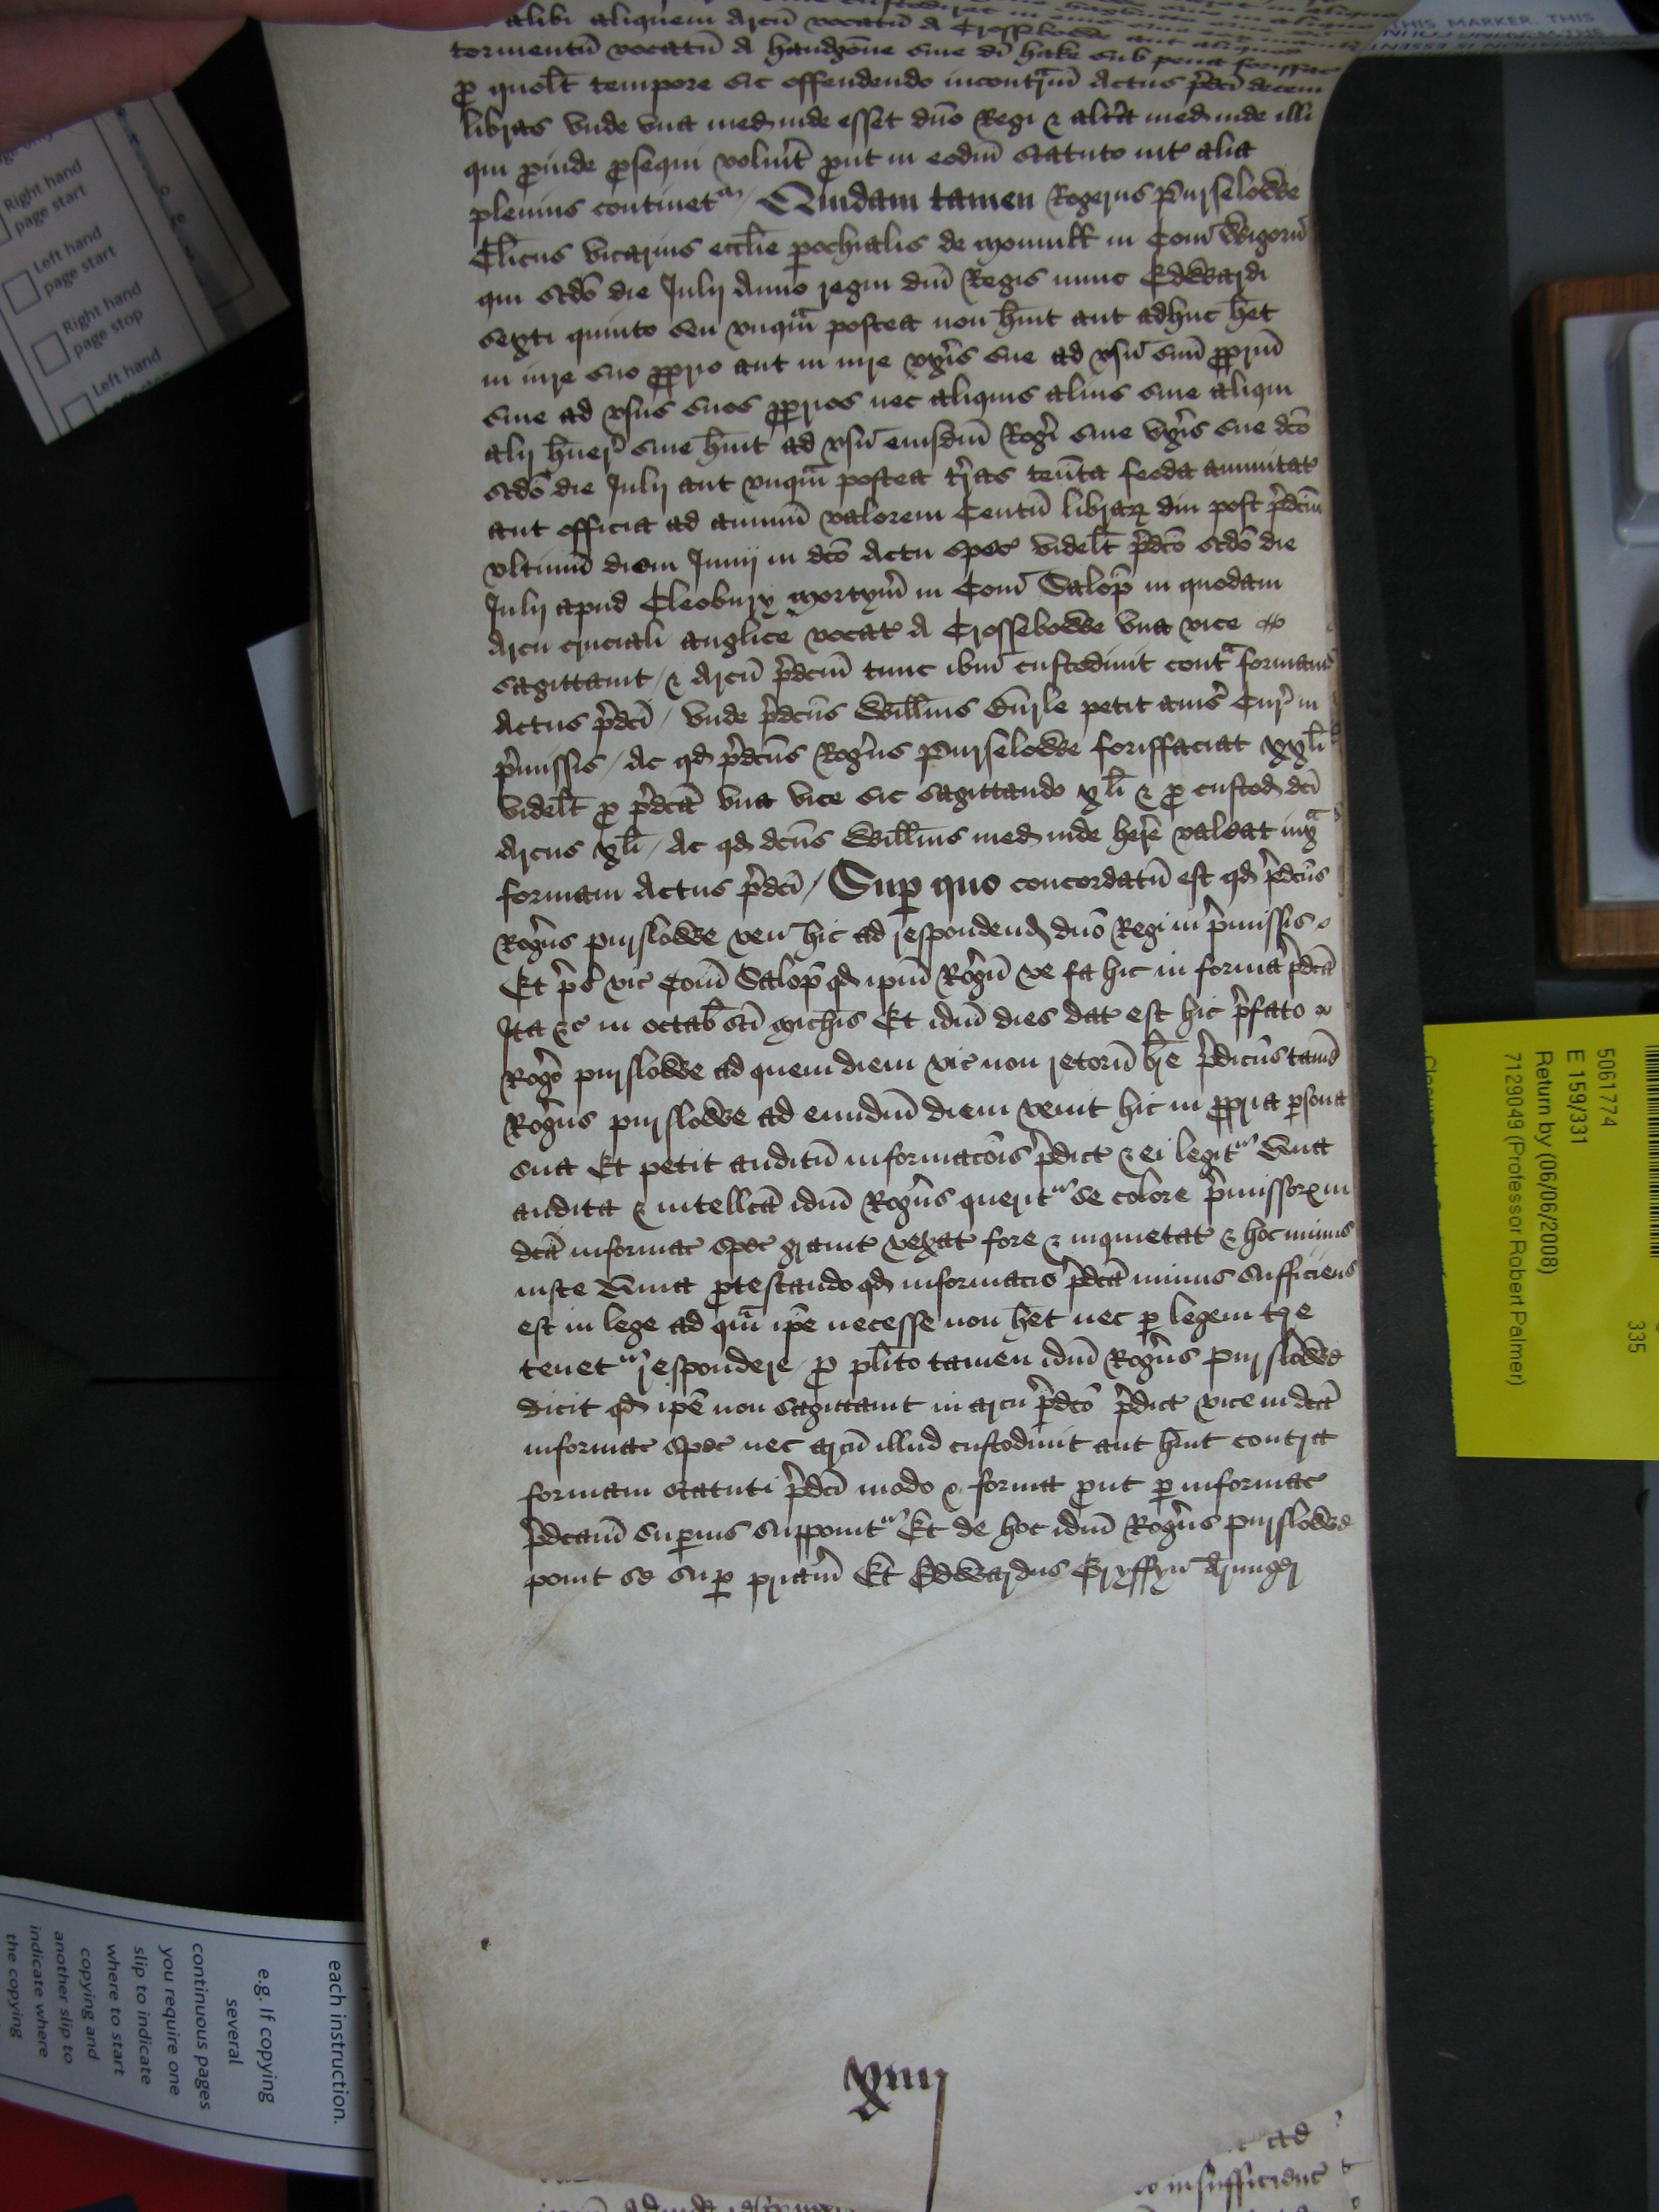 alibi aliquem Arcū vocatū A Crossebowe aut aliquod
tormentū vocatū A handgōne siue di hake sub pena forisfac
p quolt tempore sic offendendo incontrm̄ Actus p̄dci decem
libras vnde vna med inde esset dno Regi & altra med inde illi
qui pinde psequi voluit put in eodm̄ statuto int alia
plenius continet / Quidam tamen Rogerus Purselowe
Clicus vicarius ecclie pochialis de in Com̄ Wigorn̄
qui scdo die Julij Anno regni dni Regis nunc Edwardi
sexti quinto seu vnqm̄ postea non h̄uit aut adhuc h̄et
in iure suo pprio aut in iure vxis sue ad vsū suū ppriū
siue ad vsus suos pprios nec aliquis alius siue aliqui
alij h̄uer siue h̄uit ad vsū eiusdm̄ Rogi siue vxis sue dco
scdo die Julij aut vnqm̄ postea t̄ras ten̄ta feoda annuitat
aut officia ad annuū valorem Centū librar din post p̄dcm̄
vltimū diem Junij in dco Actu spec videlt p̄dco scdo die
Julij apud Cleobury mortym̄ in Com̄ Salop̄ in quodam
Arcu cruciali anglice vocat A Crossebowe vna vice
sagittauit / & Arcū p̄dcm̄ tunc ibm̄ custodiuit cont formam
Actus p̄dci / vnde p̄dcus Willm̄s petit auis Cur in
p̄missis / Ac qd p̄dcus Rogus Purselowe forisfaciat xxli
videlt p p̄dca vna vice sic sagittando xli & p custod dci
Arcus xli / Ac qd dcus Willm̄s med inde here valeat iux
formam Actus p̄dci / Sup quo concordatū est qd p̄dcus
Rogus purslowe ven̄ hic ad respondend dno Regi in p̄missis
Et p̄c vic Com̄ Salop̄ qd ipm̄ Rogū ve fa hic in forma p̄dca
Ita &c in octab sci michis Et idm̄ dies dat est hic p̄fato
Rogo purslowe ad quem diem vic non retorn̄ b̄re p̄dictus tam̄
Rogus purslowe ad eundm̄ diem venit hic in ppria psona
sua Et petit auditū informacois p̄dict & ei legit Qua
audita & intellca idm̄ Rogus querit se colore p̄missor in
dca informac spec grauit vexat fore & inquietat & hoc minus
iuste Quia ptestando qd informacio p̄dca minus sufficiens
est in lege ad qm̄ ipe necesse non h̄et nec p legem tre
tenet respondere p plito tamen idm̄ Rogus purslowe
dicit qd ipe non sagittauit in arcu p̄dco p̄dict vice in dca
informac spec nec arcū illud custodiuit aut h̄uit contra
formam statuti p̄dci modo & forma put p informac
p̄dcam̄ supius supponit Et de hoc idm̄ Rogus purslowe
ponit se sup priam̄ Et Edwardus Gryffyn̄ Armiger
xiiij
ad
insufficient
Right hand
page start
Left hand
page start
Right hand
page stop
Left hand
THIS MARKER. THIS
5061774
E 159/331
Return by (06/06/2008)
7129049 (Professor Robert Palmer)
335
each instruction.
e.g. If copying
several
continuous pages
you require one
slip to indicate
where to start
copying and
another slip to
indicate where
the copying